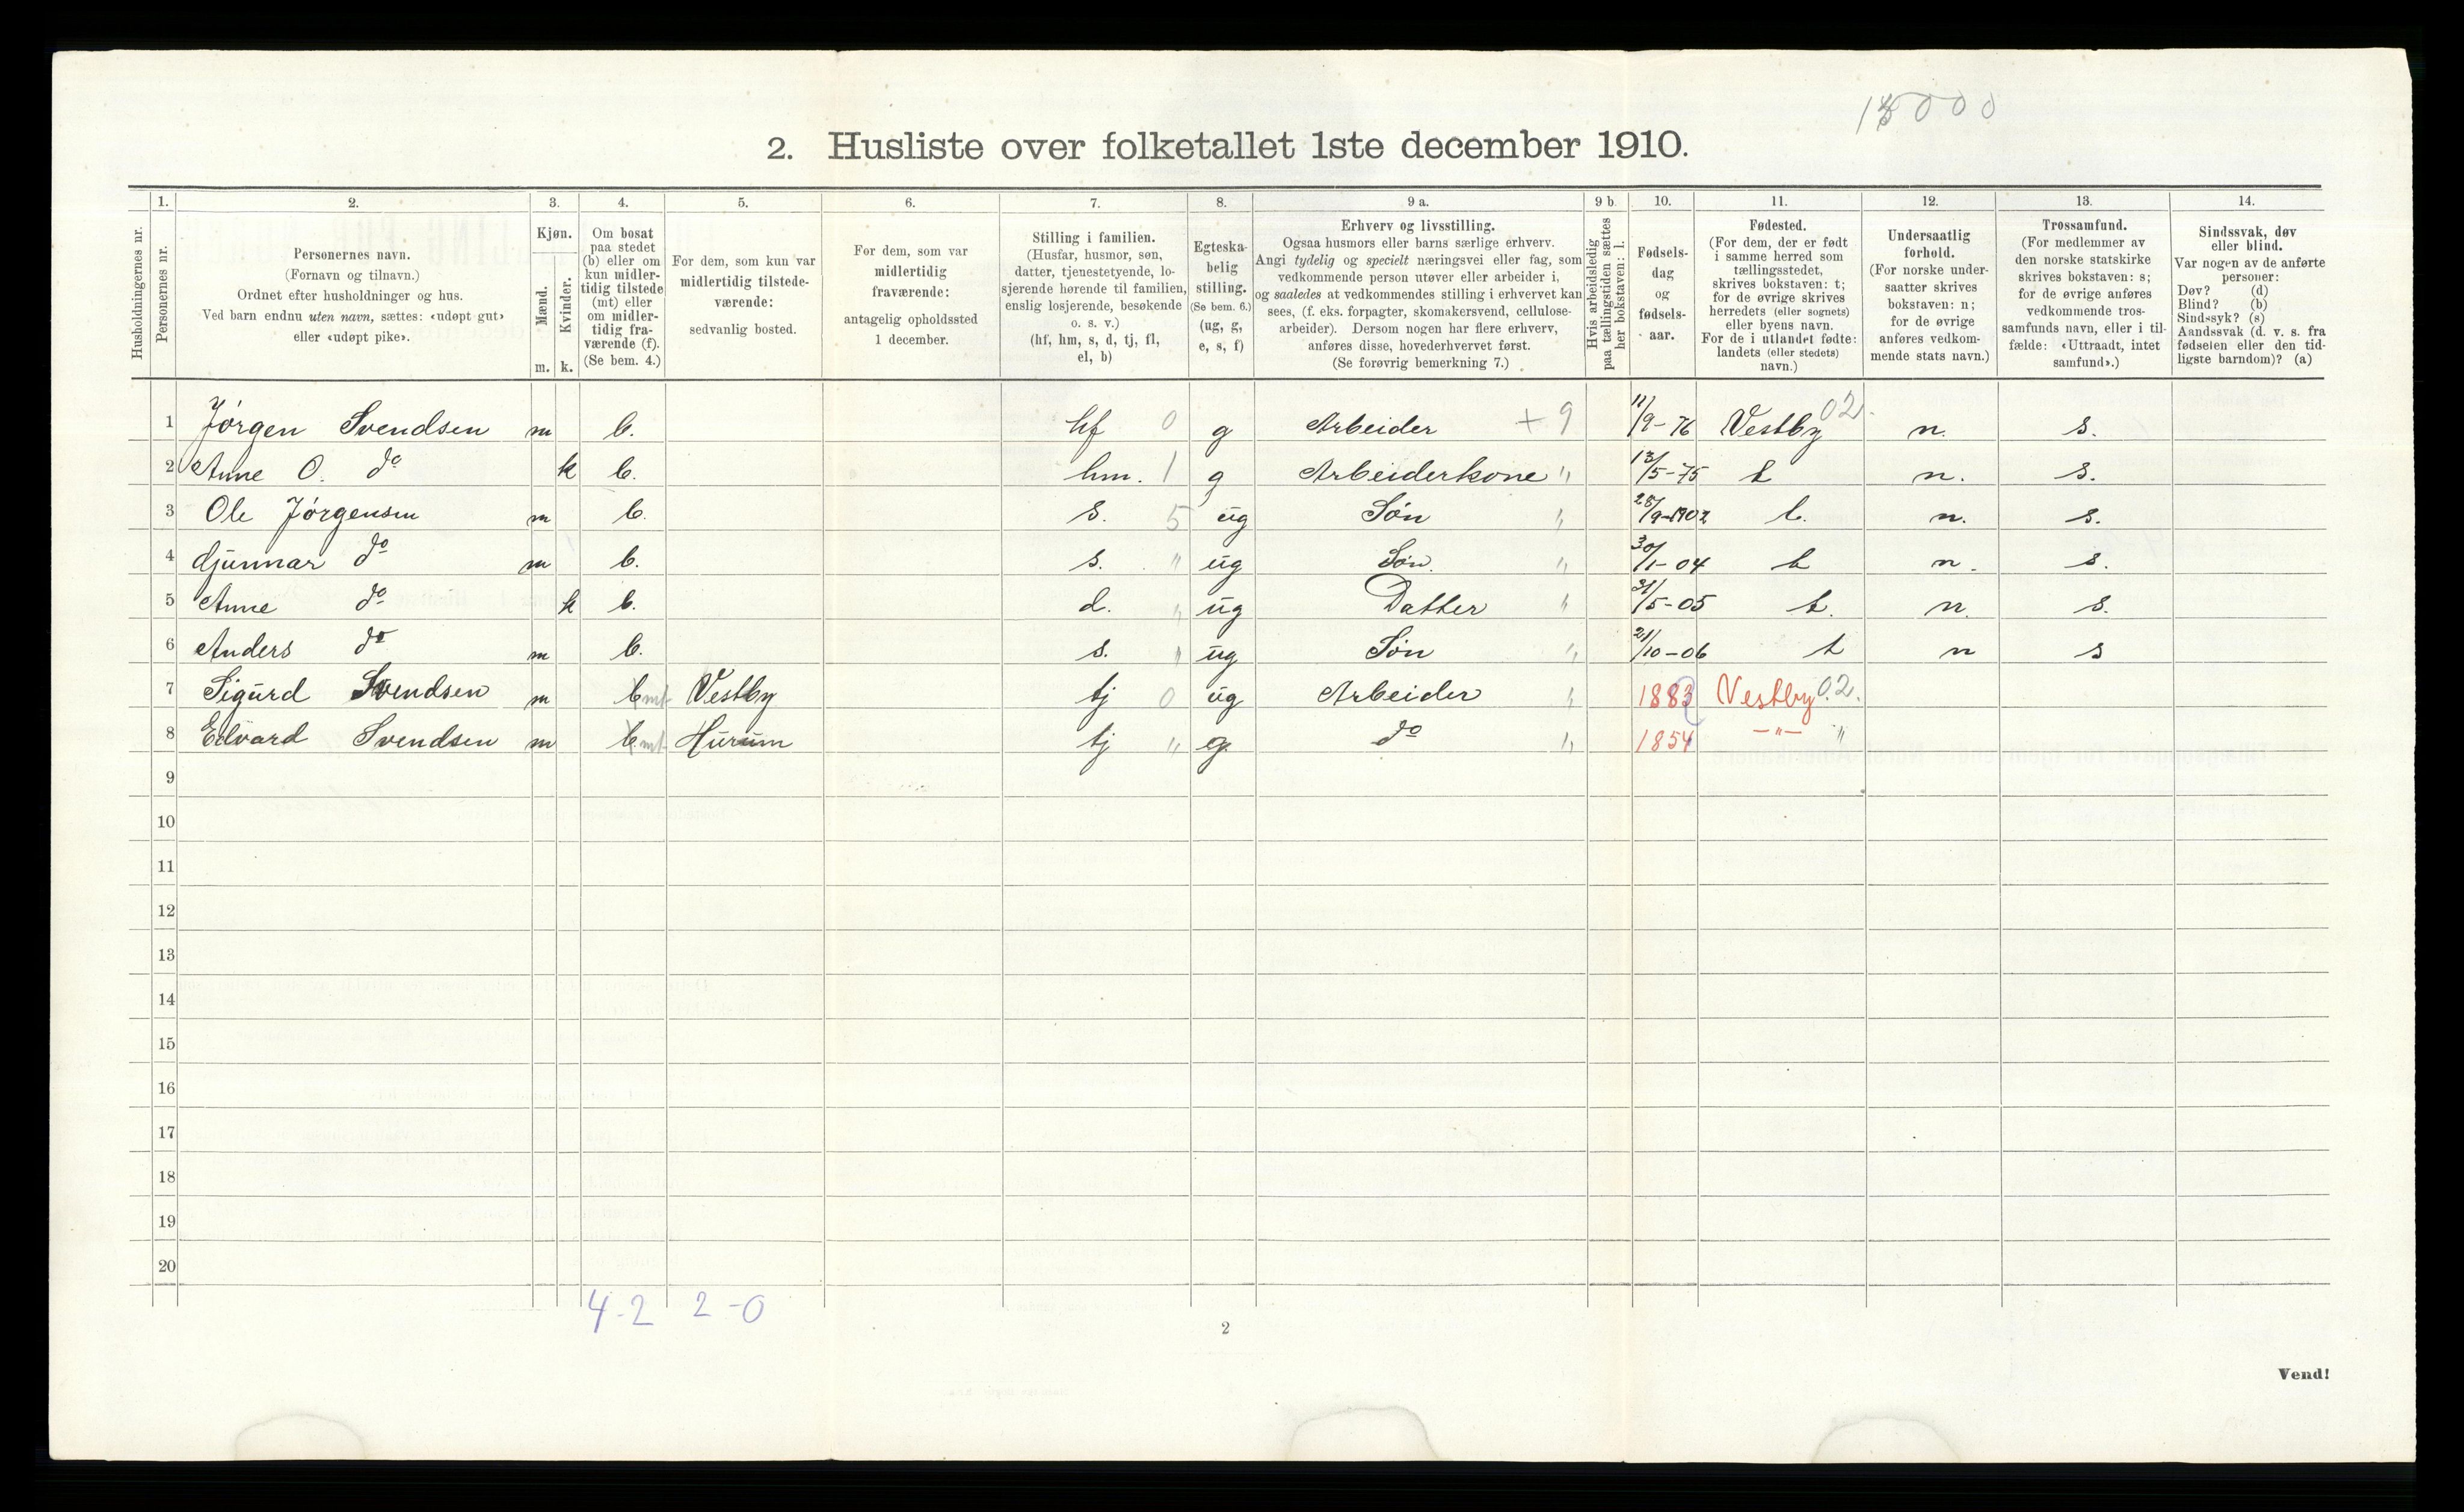 13000
2. Husliste over folketallet 1ste december 1910.
1. 2. 3. 4. 5. 6. 7. 8. 9 a. 9 b. 10. 11. 12. 13. 14.
Husholdningernes nr.
Personernes nr.
Personernes navn.
(Fornavn og tilnavn.)
Ordnet efter husholdninger og hus.
Ved barn endnu uten navn, sættes: «udøpt gut»
eller «udøpt pike».
Kjøn.
Mænd.
Kvinder.
m. k.
Om bosat
paa stedet
(b) eller om
kun midler-
tidig tilstede
(mt) eller
om midler-
tidig fra-
værende (f).
(Se bem. 4.)
For dem, som kun var
midlertidig tilstede-
værende:
sedvanlig bosted.
For dem, som var
midlertidig
fraværende:
antagelig opholdssted
1 december.
Stilling i familien.
(Husfar, husmor, søn,
datter, tjenestetyende, lo-
sjerende hørende til familien,
enslig losjerende, besøkende
o. s. v.)
(hf, hm, s, d, tj, fl,
el, b)
Egteska-
belig
stilling.
(Se bem. 6.)
(ug, g,
e, s, f)
Erhverv og livsstilling.
Ogsaa husmors eller barns særlige erhverv.
Angi tydelig og specielt næringsvei eller fag, som
vedkommende person utøver eller arbeider i,
og saaledes at vedkommendes stilling i erhvervet kan
sees, (f. eks. forpagter, skomakersvend, cellulose-
arbeider). Dersom nogen har flere erhverv,
anføres disse, hovederhvervet først.
(Se forøvrig bemerkning 7.)
Hvis arbeidsledig
paa tællingstiden sættes
her bokstaven: l.
Fødsels-
dag
og
fødsels-
aar.
Fødested.
(For dem, der er født
i samme herred som
tællingsstedet,
skrives bokstaven: t;
for de øvrige skrives
herredets (eller sognets)
eller byens navn.
For de i utlandet fødte:
landets (eller stedets)
navn.)
Undersaatlig
forhold.
(For norske under-
saatter skrives
bokstaven: n;
for de øvrige
anføres vedkom-
mende stats navn.)
Trossamfund.
(For medlemmer av
den norske statskirke
skrives bokstaven: s;
for de øvrige anføres
vedkommende tros-
samfunds navn, eller i til-
fælde: «Uttraadt, intet
samfund».)
Sindssvak, døv
eller blind.
Var nogen av de anførte
personer:
Døv? (d)
Blind? (b)
Sindssyk? (s)
Aandssvak (d. v. s. fra
fødselen eller den tid-
ligste barndom)? (a)
1 Jörgen Svendsen m b. hf 0 g Arbeider + 9 11/9-76 Vestby 02. n. s.
2 Anne O. do k b. hm. 1 g Arbeiderkone " 13/5-75 t n. s.
3 Ole Jörgensen m b. s. 5 ug Sön " 28/9-1902 t. n. s.
4 Gunnar do m b. s. " ug Søn. " 30/1-04 t n. s.
5 Anne do k b. d. " ug Datter " 31/5-05 t. n. s.
6 Anders do m b. s. " ug Søn " 21/10-06 t n s
7 Sigurd Svendsen m b mt Vestby tj 0 ug Arbeider " 1883 Vestby 02.
8 Edvard Svendsen m b mt Hurum tj " g. do " 1854 -"- "
9
10
11
12
13
14
15
16
17
18
19
20
4-2 2-0
2
Vend!